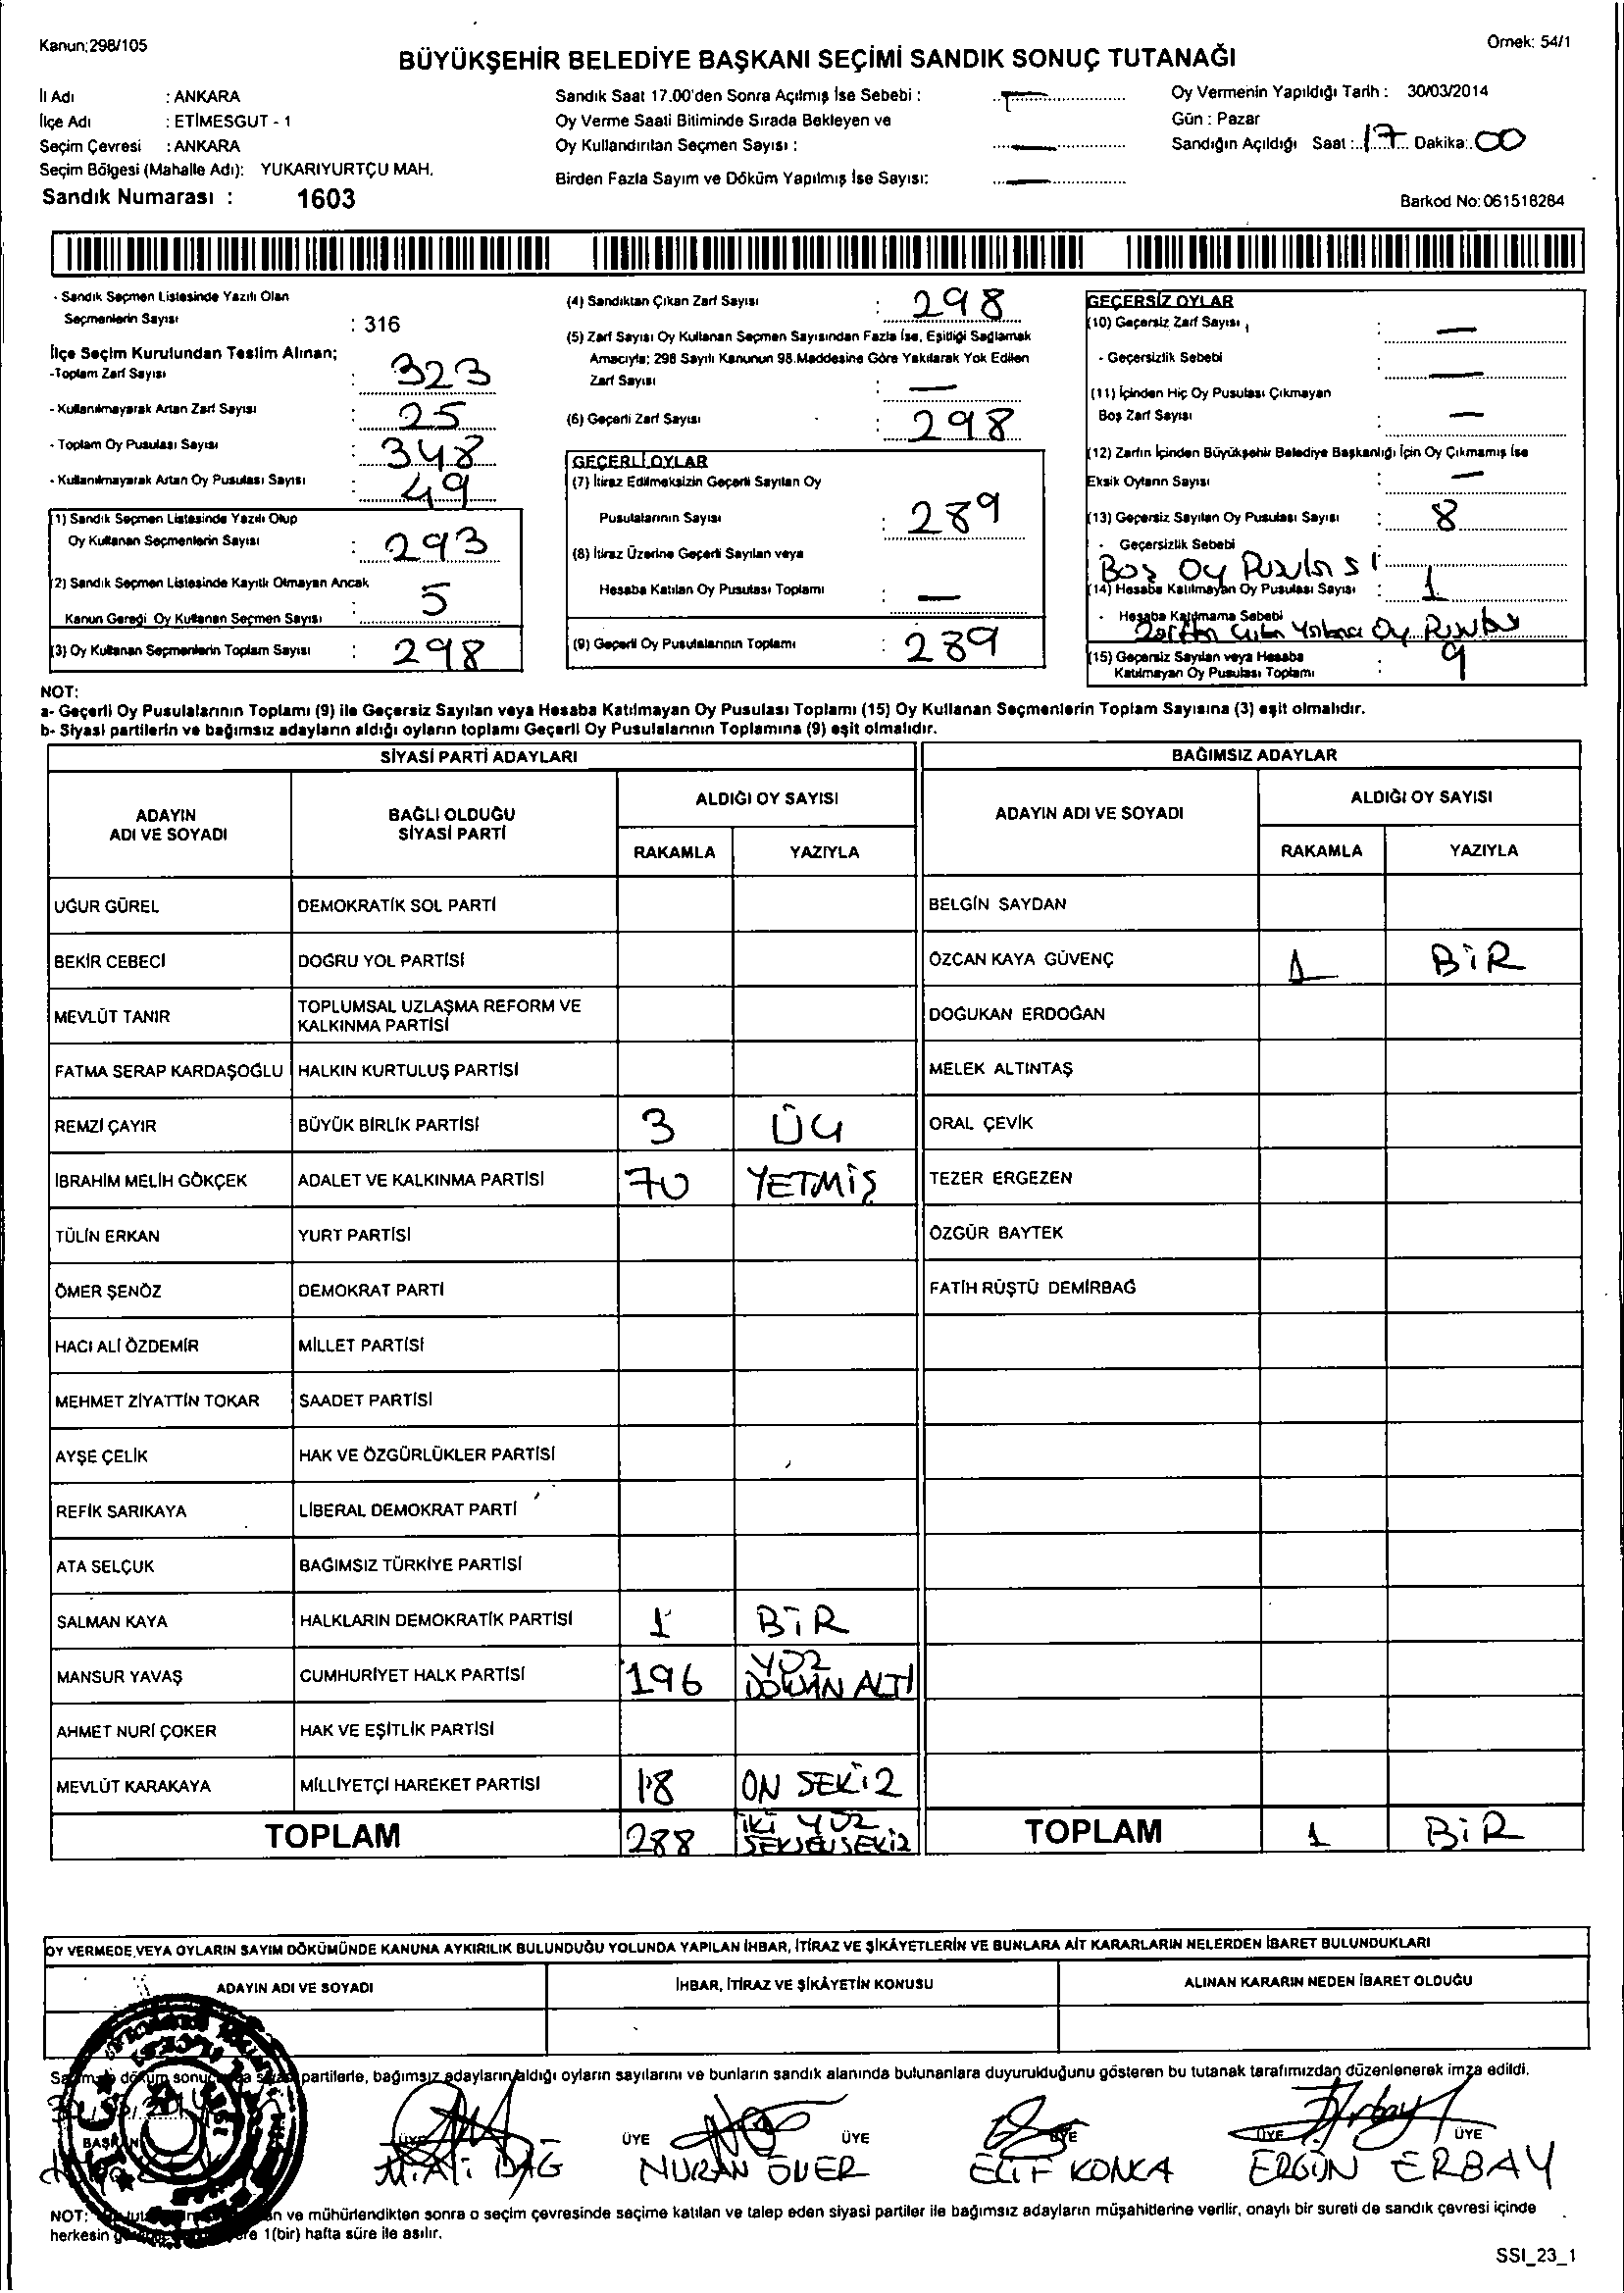 Kanun:298/105
Örnek: 54/1
BÜYÜKŞEHİR BELEDİYE BAŞKANI SEÇİMİ SANDIK SONUÇ TUTANAĞI
İl Adı : ANKARA
İlçe Adı : ETİMESGUT - 1
Seçim Çevresi : ANKARA
Seçim Bölgesi (Mahalle Adı): YUKARIYURTÇU MAH.
Sandık Numarası : 1603
Sandık Saat 17.00'den Sonra Açılmış İse Sebebi :
Oy Verme Saati Bitiminde Sırada Bekleyen ve
Oy Kullandırılan Seçmen Sayısı : —
Birden Fazla Sayım ve Döküm Yapılmış İse Sayısı: —
Oy Vermenin Yapıldığı Tarih : 30/03/2014
Gün : Pazar
Sandığın Açıldığı Saat : 17 Dakika: 00
Barkod No: 061518284
- Sandık Seçmen Listesinde Yazılı Olan
Seçmenlerin Sayısı : 316
İlçe Seçim Kurulundan Teslim Alınan;
-Toplam Zarf Sayısı : 323
- Kullanılmayarak Artan Zarf Sayısı : 25
- Toplam Oy Pusulası Sayısı : 348
- Kullanılmayarak Artan Oy Pusulası Sayısı : 49
(1) Sandık Seçmen Listesinde Yazılı Olup
Oy Kullanan Seçmenlerin Sayısı : 293
(2) Sandık Seçmen Listesinde Kayıtlı Olmayan Ancak
Kanun Gereği Oy Kullanan Seçmen Sayısı : 5
(3) Oy Kullanan Seçmenlerin Toplam Sayısı : 298
(4) Sandıktan Çıkan Zarf Sayısı : 298
(5) Zarf Sayısı Oy Kullanan Seçmen Sayısından Fazla İse, Eşitliği Sağlamak
Amacıyla; 298 Sayılı Kanunun 98.Maddesine Göre Yakılarak Yok Edilen
Zarf Sayısı : —
(6) Geçerli Zarf Sayısı : 298
GEÇERLİ OYLAR
(7) İtiraz Edilmeksizin Geçerli Sayılan Oy
Pusulalarının Sayısı : 289
(8) İtiraz Üzerine Geçerli Sayılan veya
Hesaba Katılan Oy Pusulası Toplamı : —
(9) Geçerli Oy Pusulalarının Toplamı : 289
GEÇERSİZ OYLAR
(10) Geçersiz Zarf Sayısı : —
- Geçersizlik Sebebi : —
(11) İçinden Hiç Oy Pusulası Çıkmayan
Boş Zarf Sayısı : —
(12) Zarfın İçinden Büyükşehir Belediye Başkanlığı İçin Oy Çıkmamış İse
Eksik Oyların Sayısı : —
(13) Geçersiz Sayılan Oy Pusulası Sayısı : 8
- Geçersizlik Sebebi
Boş Oy Pusulası
(14) Hesaba Katılmayan Oy Pusulası Sayısı : 1
- Hesaba Katılmama Sebebi
Zarftan Çıkan Yabancı Oy Pusulası
(15) Geçersiz Sayılan veya Hesaba
Katılmayan Oy Pusulası Toplamı : 9
NOT:
a- Geçerli Oy Pusulalarının Toplamı (9) ile Geçersiz Sayılan veya Hesaba Katılmayan Oy Pusulası Toplamı (15) Oy Kullanan Seçmenlerin Toplam Sayısına (3) eşit olmalıdır.
b- Siyasi partilerin ve bağımsız adayların aldığı oyların toplamı Geçerli Oy Pusulalarının Toplamına (9) eşit olmalıdır.
SİYASİ PARTİ ADAYLARI
BAĞIMSIZ ADAYLAR
ADAYIN ADI VE SOYADI
BAĞLI OLDUĞU SİYASİ PARTİ
ALDIĞI OY SAYISI
RAKAMLA YAZIYLA
ADAYIN ADI VE SOYADI
ALDIĞI OY SAYISI
RAKAMLA YAZIYLA
UĞUR GÜREL DEMOKRATİK SOL PARTİ BELGİN SAYDAN
BEKİR CEBECİ DOĞRU YOL PARTİSİ ÖZCAN KAYA GÜVENÇ 1 BİR
MEVLÜT TANIR TOPLUMSAL UZLAŞMA REFORM VE KALKINMA PARTİSİ DOĞUKAN ERDOĞAN
FATMA SERAP KARDAŞOĞLU HALKIN KURTULUŞ PARTİSİ MELEK ALTINTAŞ
REMZİ ÇAYIR BÜYÜK BİRLİK PARTİSİ 3 ÜÇ ORAL ÇEVİK
İBRAHİM MELİH GÖKÇEK ADALET VE KALKINMA PARTİSİ 70 YETMİŞ TEZER ERGEZEN
TÜLİN ERKAN YURT PARTİSİ ÖZGÜR BAYTEK
ÖMER ŞENÖZ DEMOKRAT PARTİ FATİH RÜŞTÜ DEMİRBAĞ
HACI ALİ ÖZDEMİR MİLLET PARTİSİ
MEHMET ZİYATTİN TOKAR SAADET PARTİSİ
AYŞE ÇELİK HAK VE ÖZGÜRLÜKLER PARTİSİ
REFİK SARIKAYA LİBERAL DEMOKRAT PARTİ
ATA SELÇUK BAĞIMSIZ TÜRKİYE PARTİSİ
SALMAN KAYA HALKLARIN DEMOKRATİK PARTİSİ 1 BİR
MANSUR YAVAŞ CUMHURİYET HALK PARTİSİ 196 YÜZ DOKSAN ALTI
AHMET NURİ ÇOKER HAK VE EŞİTLİK PARTİSİ
MEVLÜT KARAKAYA MİLLİYETÇİ HAREKET PARTİSİ 18 ON SEKİZ
TOPLAM 288 İKİ YÜZ SEKSEN SEKİZ TOPLAM 1 BİR
OY VERMEDE VEYA OYLARIN SAYIM DÖKÜMÜNDE KANUNA AYKIRILIK BULUNDUĞU YOLUNDA YAPILAN İHBAR, İTİRAZ VE ŞİKÂYETLERİN VE BUNLARA AİT KARARLARIN NELERDEN İBARET BULUNDUKLARI
ADAYIN ADI VE SOYADI İHBAR, İTİRAZ VE ŞİKÂYETİN KONUSU ALINAN KARARIN NEDEN İBARET OLDUĞU
partilerle, bağımsız adayların aldığı oyların sayılarını ve bunların sandık alanında bulunanlara duyurulduğunu gösteren bu tutanak tarafımızdan düzenlenerek imza edildi.
BAŞKAN ÜYE ÜYE ÜYE ÜYE ÜYE ÜYE
M. Ali DAĞ NURAN ÖVER ELİF KONCA ERGÜN ERBAY
NOT: ve mühürlendikten sonra o seçim çevresinde seçime katılan ve talep eden siyasi partiler ile bağımsız adayların müşahitlerine verilir, onaylı bir sureti de sandık çevresi içinde
herkesin 1(bir) hafta süre ile asılır.
SSI_23_1